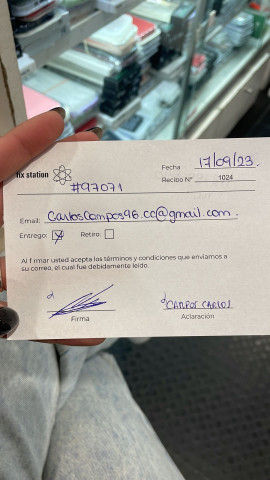 fix station
Fecha 17/09/23.
Recibo N° 1024
#97071
Email: CarlosCampos96.cc@gmail.com.
Entrego: Retiro:
Al firmar usted acepta los términos y condiciones que enviamos a
su correo, el cual fue debidamente leído.
CAMPOS CARLOS
Firma Aclaración